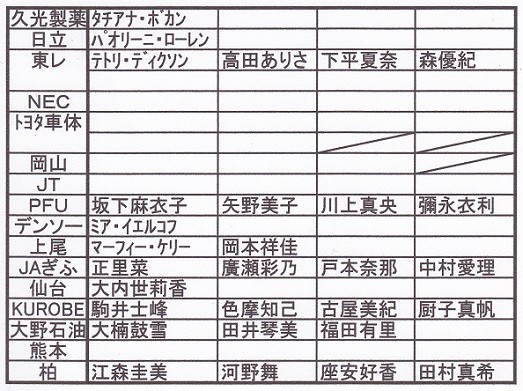 久光製薬 タチアナ・ボカン
日立 パオリーニ・ローレン
東レ テトリ・ディクソン 高田ありさ 下平夏奈 森優紀
NEC
トヨタ車体
岡山
JT
PFU 坂下麻衣子 矢野美子 川上真央 彌永衣利
デンソー ミア・イエルコフ
上尾 マーフィー・ケリー 岡本祥佳
JAぎふ 正里菜 廣瀬彩乃 戸本奈那 中村愛理
仙台 大内世莉香
KUROBE 駒井士峰 色摩知己 古屋美紀 厨子真帆
大野石油 大楠鼓雪 田井琴美 福田有里
熊本
柏 江森圭美 河野舞 座安好香 田村真希